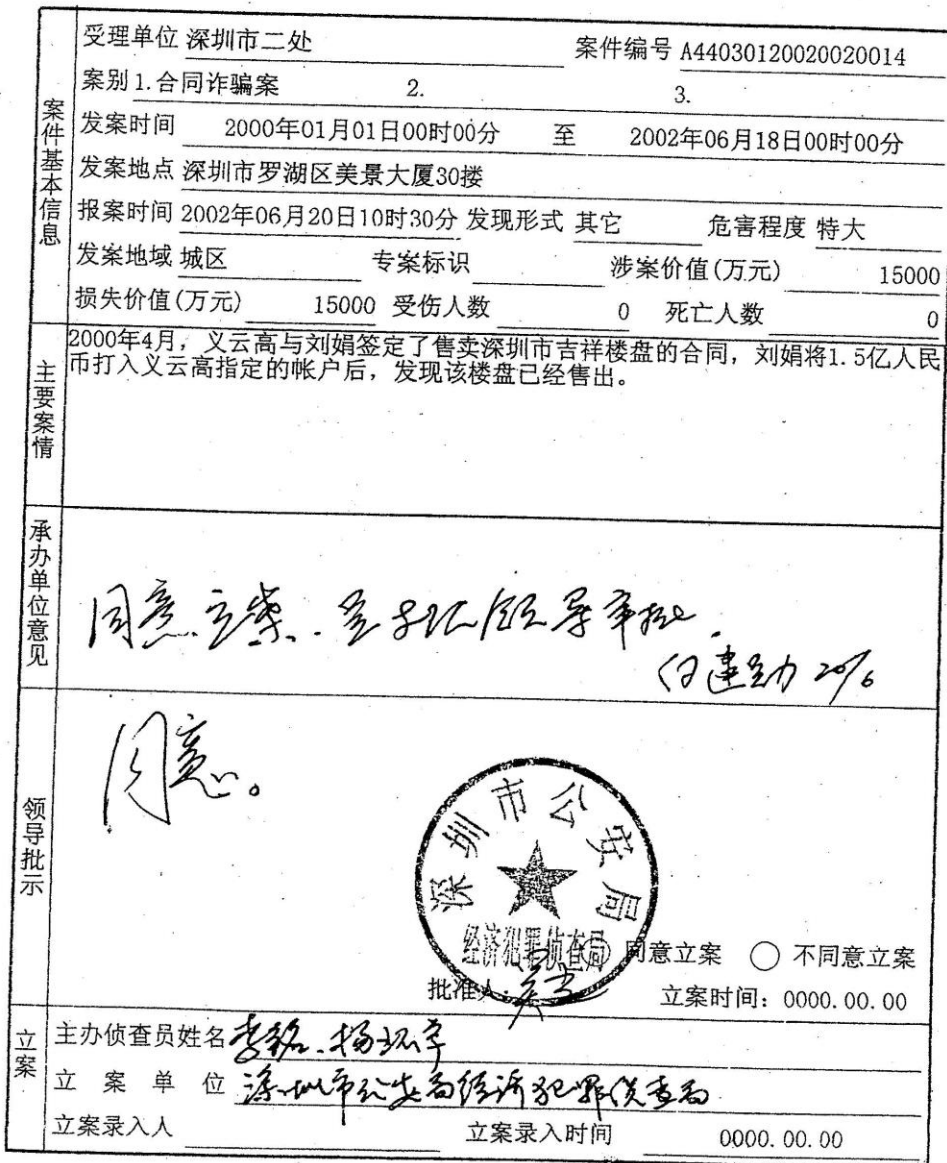 受理单位 深圳市二处 案件编号 A44030120020020014
案别 1.合同诈骗案 2. 3.
案件基本信息
发案时间 2000年01月01日00时00分 至 2002年06月18日00时00分
发案地点 深圳市罗湖区美景大厦30搂
报案时间 2002年06月20日10时30分 发现形式 其它 危害程度 特大
发案地域 城区 专案标识 涉案价值(万元) 15000
损失价值(万元) 15000 受伤人数 0 死亡人数 0
主要案情
2000年4月，义云高与刘娟签定了售卖深圳市吉祥楼盘的合同，刘娟将1.5亿人民
币打入义云高指定的帐户后，发现该楼盘已经售出。
承办单位意见
同意立案.呈 领导审批.
建勋 20/6
领导批示
同意。
深圳市公安局
经济犯罪侦查局
同意立案 不同意立案
批准人:
立案时间：0000.00.00
立案
主办侦查员姓名
立案单位 深圳市公安局经济犯罪侦查局
立案录入人 立案录入时间 0000.00.00